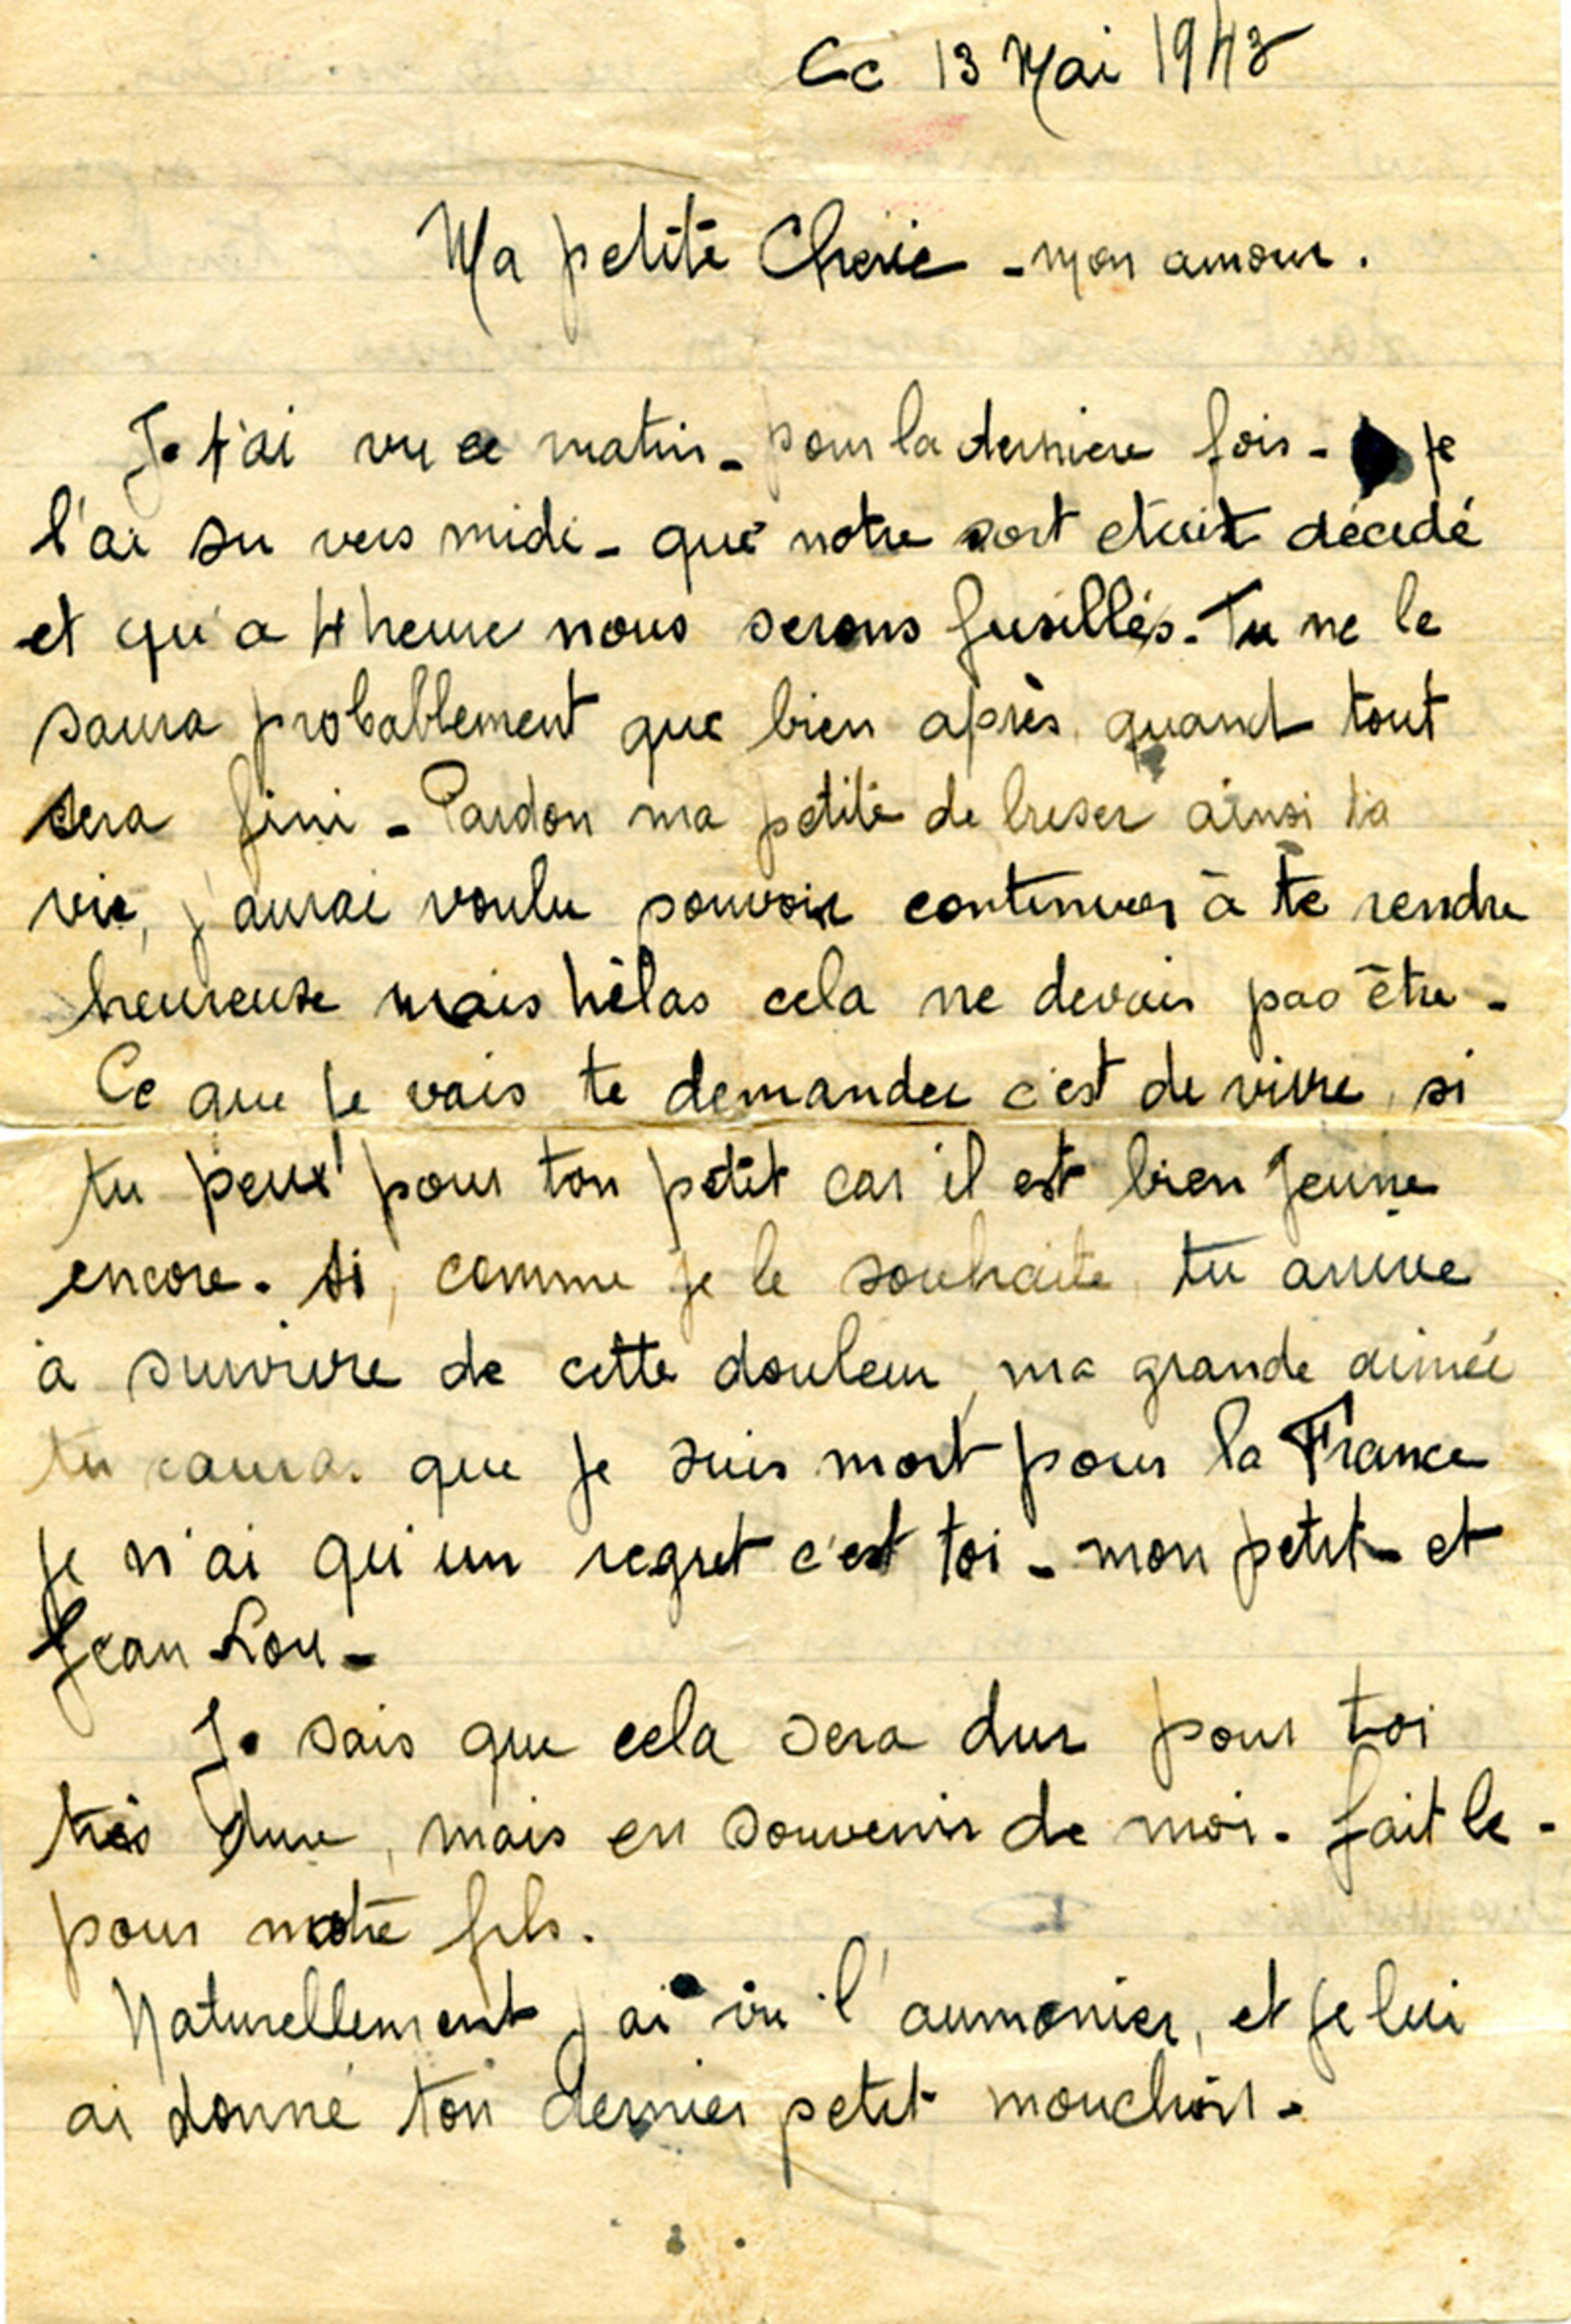 Ce 13 Mai 1943
Ma petite Cherie - mon amour.
Je t'ai vu ce matin - pour la derniere fois - je
l'ai su vers midi - que notre sort etait décidé
et qu'a 4 heure nous serons fusillés. Tu ne le
saura probablement que bien après, quand tout
sera fini - Pardon ma petite de briser ainsi ta
vie, j'aurai voulu pouvoir continuer à te rendre
heureuse mais hélas cela ne devais pas être -
Ce que je vais te demander c'est de vivre, si
tu peux pour ton petit car il est bien jeune
encore. Si, comme je le souhaite, tu arrive
à survivre de cette douleur, ma grande aimée
tu sauras que je suis mort pour la France
je n'ai qu'un regret c'est toi - mon petit - et
Jean Lou -
Je sais que cela sera dur pour toi
très dure, mais en souvenir de moi - fait le -
pour notre fils.
Naturellement j'ai vu l'aumonier, et je lui
ai donné ton dernier petit mouchoir -